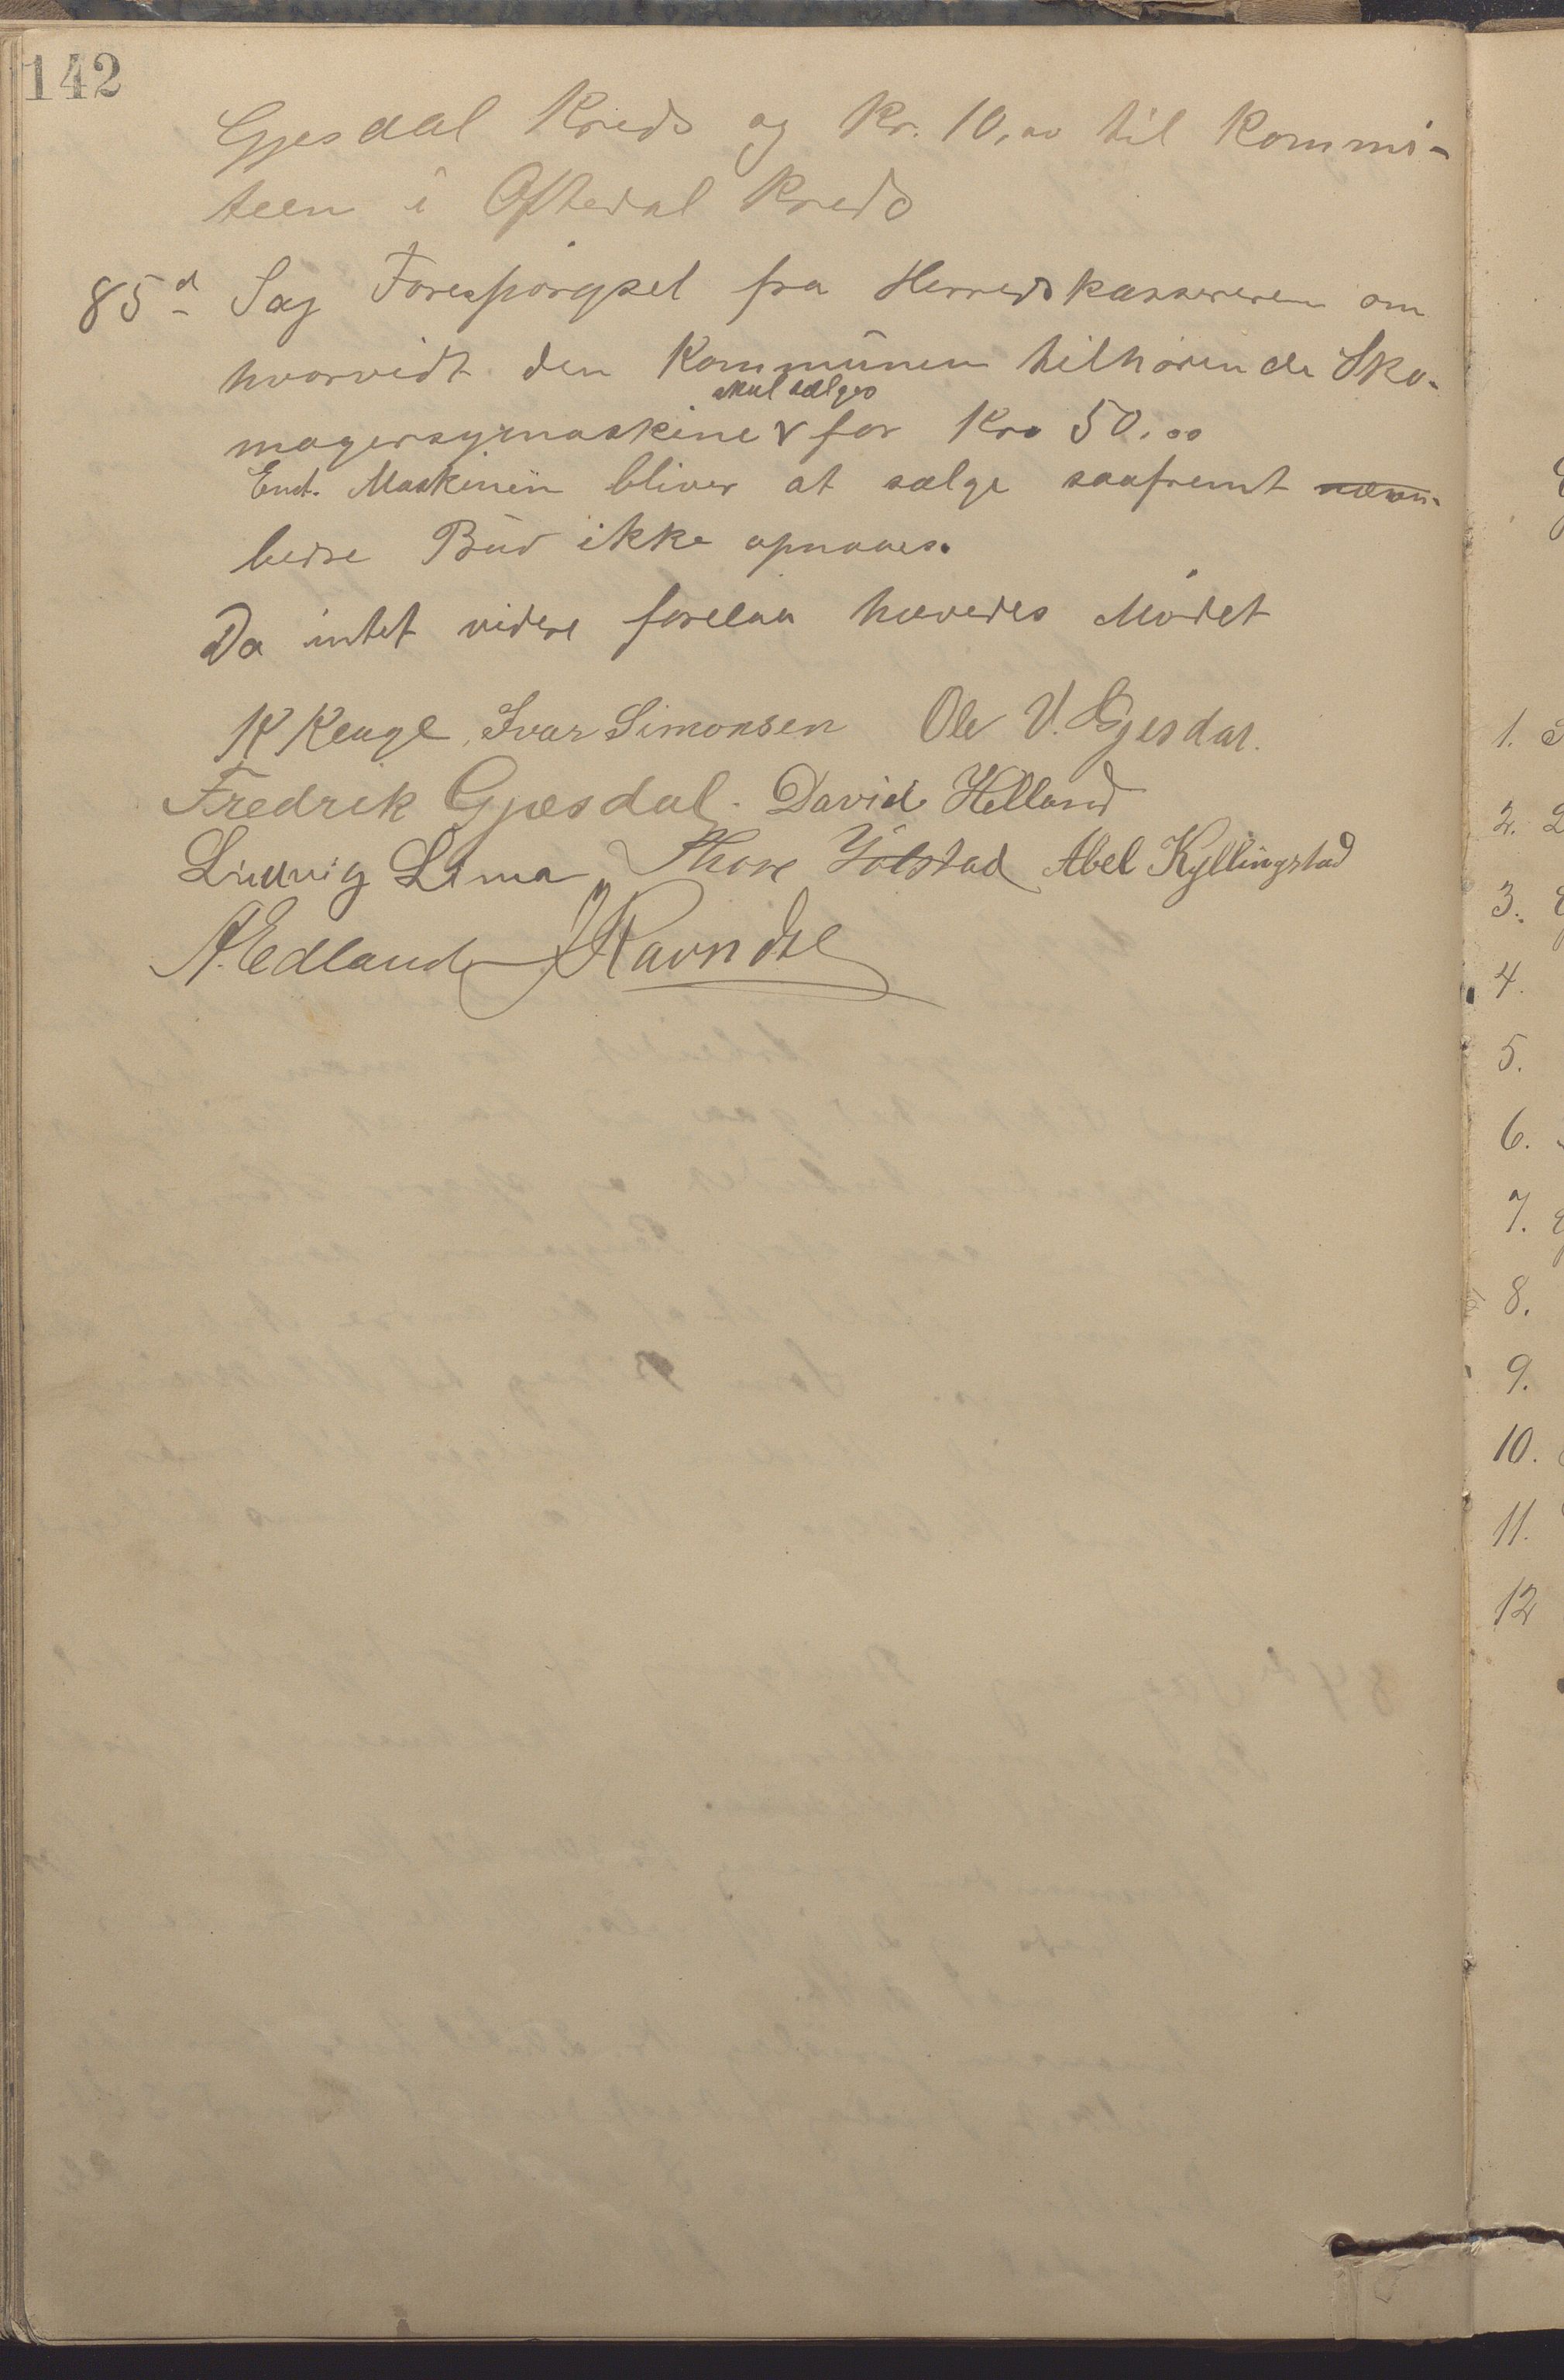 142
Gjesdal Kreds og Kr. 10,00 til Kommi-
teen i Oftedal Kreds
85d Sag Forespørgsel fra Herredskassereren om
hvorvidt den Kommunen tilhørende Sko-
skal sælges
magersymaskine for Kr. 50.00
End. Maskinen bliver at sælge saafremt
bedre Bud ikke opnaaes.
Da intet videre forelaa hævedes Mødet
K Kluge, Ivar Simonsen Ole V. Gjesdal.
Fredrik Gjesdal. David Helland
Ludvig Lima Thore Ydstad Abel Kyllingstad
A. Edland Ravndal
1.
2.
3.
4.
5.
6.
7.
8.
9.
10.
11.
12